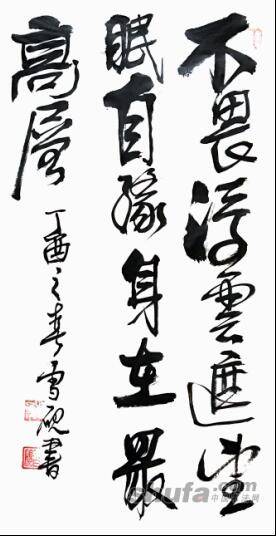 不畏浮雲遮望
眼自緣身在最
高層
丁酉之春雪砚書
shufa.com